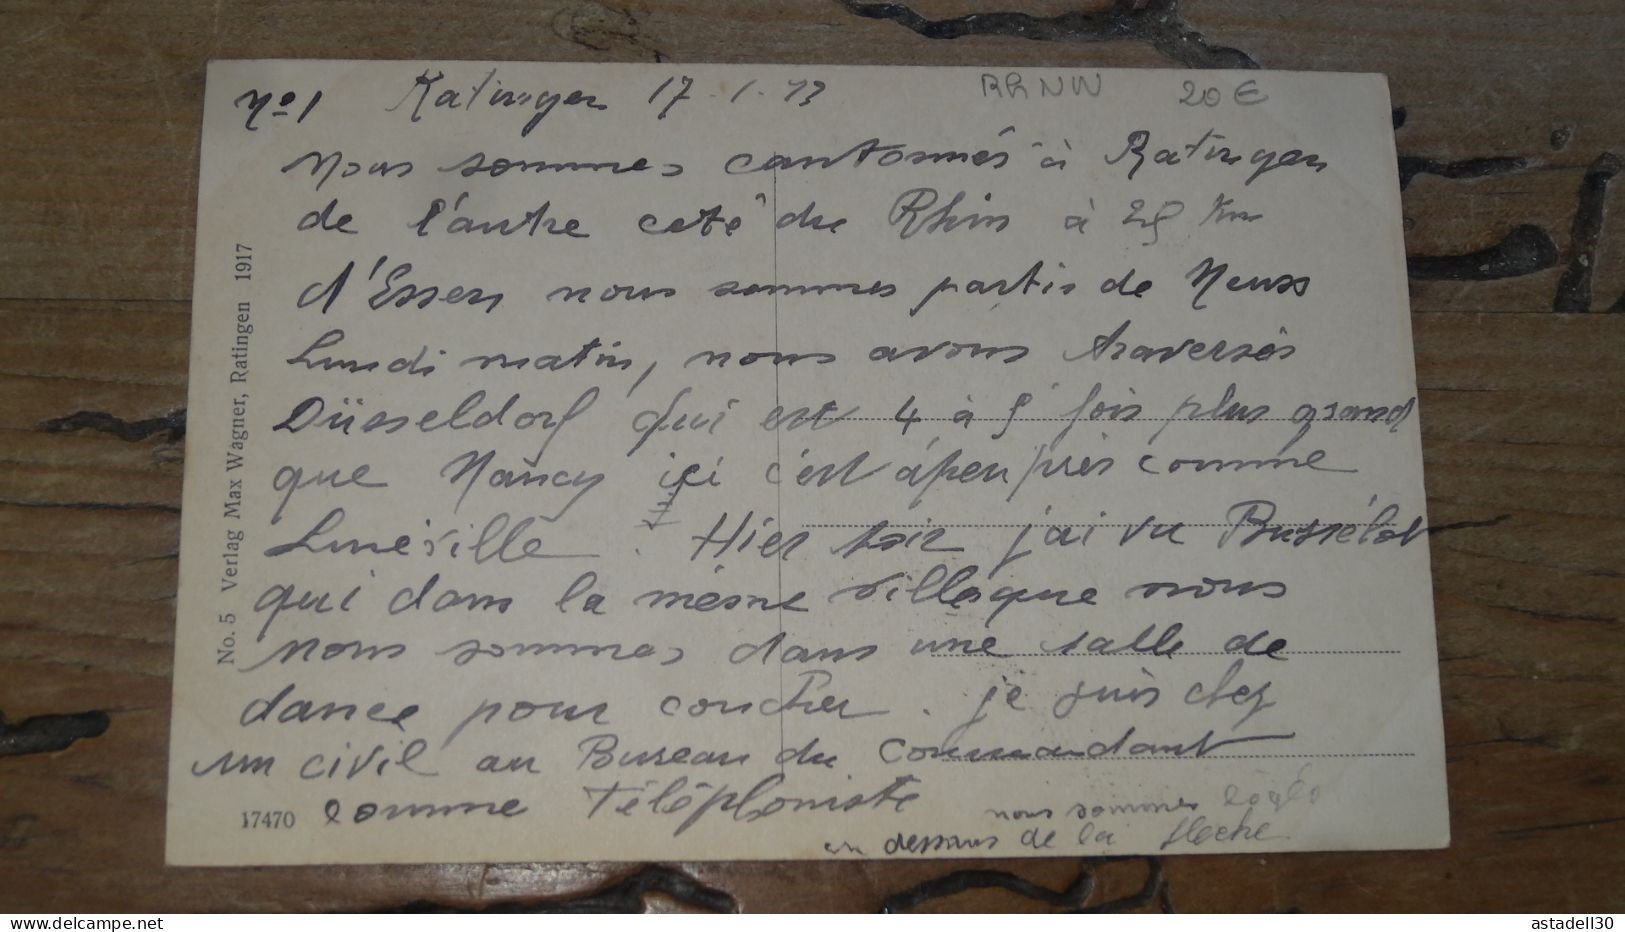 No 1 Ratingen 17-1-23 RhNW 20€
Nous sommes cantonnés à Ratingen
de l'autre coté du Rhin à 25 Km
d'Essen nous sommes partis de Neuss
Lundi matin, nous avons traversés
Düsseldorf qui est 4 à 5 fois plus grand
que Nancy ici c'est à peu près comme
Lunéville. Hier soir j'ai vu
qui dans la mésme ville que nous
nous sommes dans une salle de
dance pour coucher. je suis chez
un civil au Bureau du Commandant
comme Téléphoniste
nous sommes logés
en dessous de la fleche
No. 5 Verlag Max Wagner, Ratingen 1917
17470
astadell30